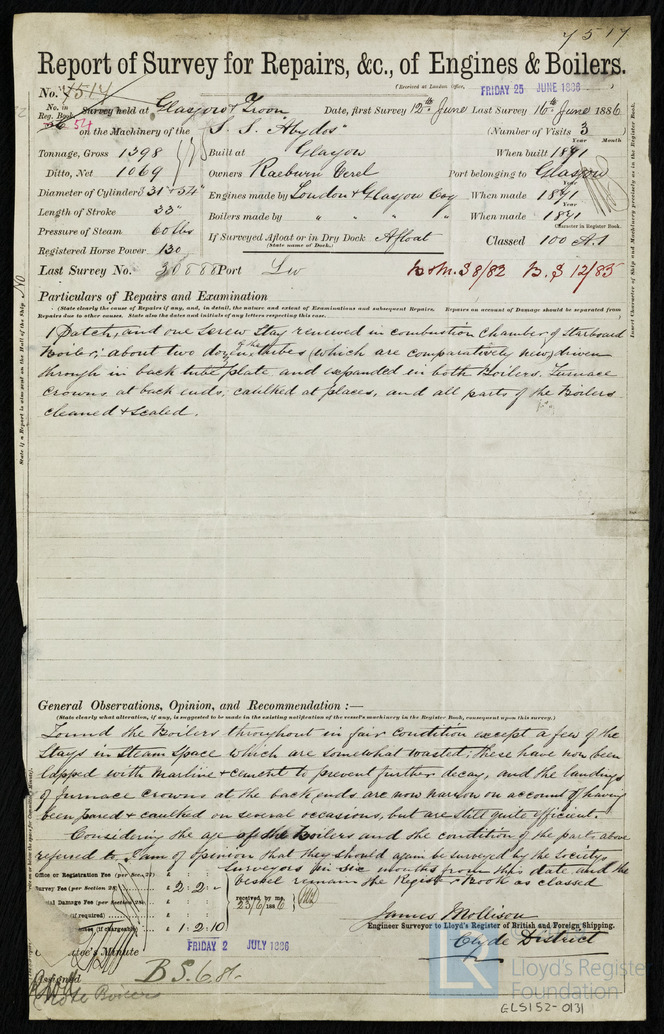 7517
Report of Survey for Repairs, &c., of Engines & Boilers.
(Received at London Office, FRIDAY 25 JUNE 1886)
No. 7514
No. in Reg. Book. 54 Survey held at Glasgow & Troon Date, first Survey 12th June Last Survey 16th June 1886
on the Machinery of the S. S. "Abydos" (Number of Visits 3)
Year Month
Tonnage, Gross 1398 Built at Glasgow When built 1871
Ditto, Net 1069 Owners Raeburn & Verel Port belonging to Glasgow
Year
Diameter of Cylinders 31" & 54" Engines made by London & Glasgow Coy When made 1871
Year
Length of Stroke 33" Boilers made by " " " " When made 1871
Character in Register Book.
Pressure of Steam 60 lbs If Surveyed Afloat or in Dry Dock Afloat Classed 100 A1
(State name of Dock.)
Registered Horse Power 130
Last Survey No. Port Lw B & M. S 8/82 B. S 12/85
Particulars of Repairs and Examination
(State clearly the cause of Repairs if any, and, in detail, the nature and extent of Examinations and subsequent Repairs. Repairs on account of Damage should be separated from
Repairs due to other causes. State also the dates and initials of any letters respecting this case.)
1 Patch, and one Screw Stay renewed in combustion chamber of Starboard
Boiler; about two dozen of the tubes (which are comparatively new) driven
through in back tube plate and expanded in both Boilers. Furnace
crowns at back ends, caulked at places, and all parts of the Boilers
cleaned & scaled.
General Observations, Opinion, and Recommendation :—
(State clearly what alteration, if any, is suggested to be made in the existing notification of the vessel's machinery in the Register Book, consequent upon this survey.)
Found the Boilers throughout in fair condition except a few of the
Stays in Steam Space which are somewhat wasted; these have now been
lapped with marline & cement to prevent further decay, and the landings
of furnace crowns at the back ends are now narrow on account of having
been pared & caulked on several occasions, but are still quite efficient.
Considering the age of the Boilers and the condition of the parts above
referred to, I am of opinion that they should again be surveyed by the Society's
Surveyors in six months from this date and the
vessel remain in the Register Book as classed
Office or Registration Fee (per Sec. 27) £ : :
Survey Fee (per Section 28) £ 2 : 2 : -
Special Damage Fee (per Section 28) £ : :
(if required) £ : :
(if chargeable) £ 1 : 2 : 10
received by me,
23/6/1886
James Mollison
Engineer Surveyor to Lloyd's Register of British and Foreign Shipping.
Clyde District
Committee's Minute FRIDAY 2 JULY 1886
Assigned B S. 6. 86.
Note Boilers
State if a Report is also sent on the Hull of the Ship. No
Insert Character of Ship and Machinery precisely as in the Register Book.
LR Lloyd's Register
Foundation
GLS152-0131